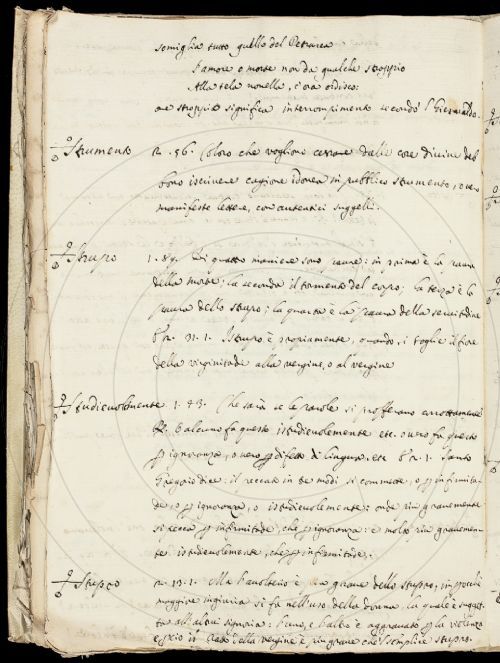 somiglia tutto quello del Petrarca
S'amore o morte non da qualche stroppio
Alla tela novella, ch'ora ordisco:
ove stroppio significa interrompimento secondo l
Istrumento 2. 56. Coloro che vogliono cessare dalle cose divine deb
bono iscrivere cagione idonea in pubblico strumento, overo
manifeste lettere, con autentici suggelli.
Istupo 1. 89. Di quattro maniere sono paure: in prima è la paura
della morte; la seconda il tormento del corpo; la terza è la
paura dello stupo; la quarta è la paura della servitudine
31. 1. Istupro è propiamente, quando si toglie il fiore
della virginitade alla vergine, o al vergine
Istudievolmente 1. 23. Che sarà se le parole si profferano corrottamente
S'alcuno fa questo istudievolemente etc. overo fa questo
ꝑ ignoranza, overo ꝑ difetto di lingua. etc 1. Santo
Gregorio dice: il peccato in tre modi si commette, o ꝑ infirmita-
de, o ꝑ ignoranza, o istudievolemente: onde più gravemente
si pecca ꝑ infirmitade, che ꝑ ignoranza: e molto più gravemen-
te istudievolemente, che ꝑ infirmitade.
Istupro 2. 13. 1. Ma l'avolterio è più grave dello stupro, in perciò che
maggiore ingiuria si fa nell'uso della donna, la quale è sugget
ta all'altrui signoria: l'uno, e l'altro è aggravato ꝑ la violenza
della vergine è più grave che 'l semplice stupro.